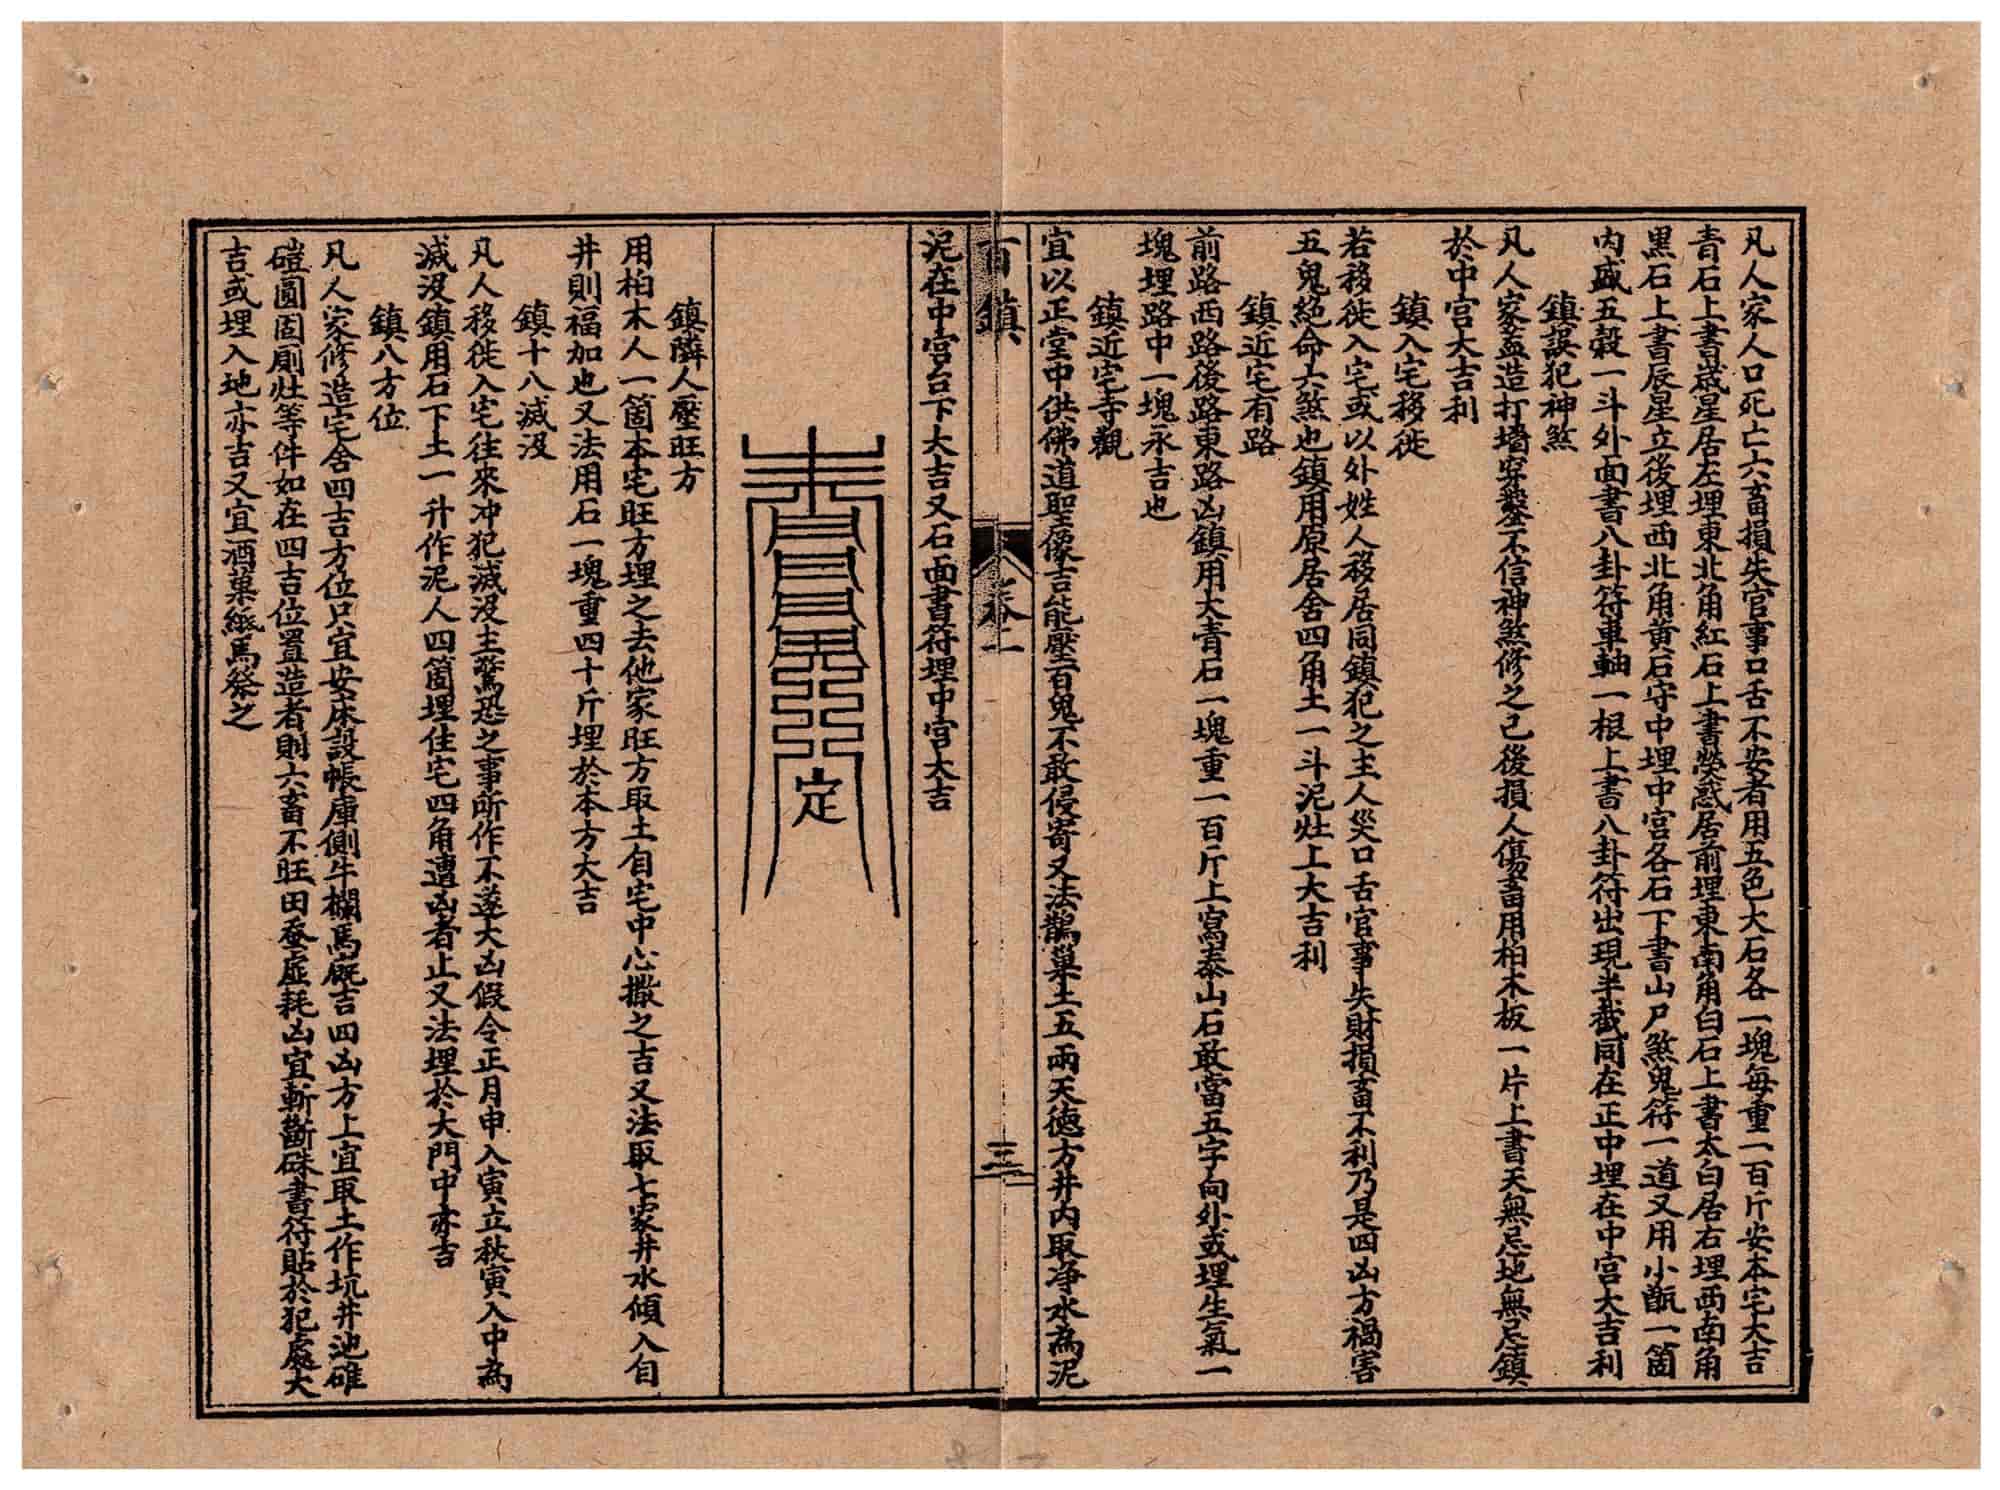 凡人家人口死亡六畜損失官事口舌不安者用五色大石各一塊每重一百斤安本宅大吉
青石上書歲星居左埋東北角紅石上書熒惑居前埋東南角白石上書太白居右埋西南角
黑石上書辰星立後埋西北角黃石守中埋中宮各石下書山尸煞鬼符一道又用小瓶一箇
內盛五穀一斗外面書八卦符車軸一根上書八卦符出現半截同在正中埋在中宮大吉利
鎮誤犯神煞
凡人家盖造打墻穿鑿不信神煞修之已後損人傷畜用柏木板一片上書天無忌地無忌鎮
於中宮大吉利
鎮入宅移徙
若移徙入宅或以外姓人移居同鎮犯之主人災口舌官事失財損畜不利乃是四凶方禍害
五鬼絕命六煞也鎮用原居舍四角土一斗泥灶上大吉利
鎮近宅有路
前路西路後路東路凶鎮用大青石一塊重一百斤上寫泰山石敢當五字向外或埋生氣一
塊埋路中一塊永吉也
鎮近宅寺觀
宜以正堂中供佛道聖像吉能壓百鬼不敢侵寄又法鵲巢土五兩天德方井內取净水為泥
百鎮 卷二 三
泥在中宮台下大吉又石面書符埋中宮大吉
定
鎮隣人壓旺方
用柏木人一箇本宅旺方埋之去他家旺方取土自宅中心撒之吉又法取七家井水傾入自
井則福加也又法用石一塊重四十斤埋於本方大吉
鎮十八滅没
凡人移徙入宅往來冲犯滅没主驚恐之事所作不遂大凶假令正月申入寅立秋寅入中為
滅没鎮用石下土一升作泥人四箇埋住宅四角遭凶者止又法埋於大門中亦吉
鎮八方位
凡人家修造宅舍四吉方位只宜安床設帳庫側牛欄馬厩吉四凶方上宜取土作坑井池碓
磑圓固厠灶等件如在四吉位置造者則六畜不旺田蚕虛耗凶宜斬斷硃書符貼於犯處大
吉或埋入地亦吉又宜酒菓紙馬祭之